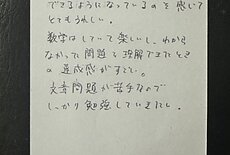 できるようになっているのを感じて
とてもうれしい。
数学はしていて楽しいし、わから
なかった問題を理解できたとき
の達成感がすごい。
文章問題が苦手なので
しっかり勉強していきたい。